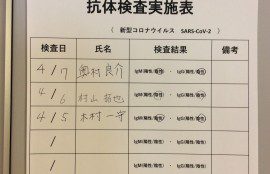 抗体検査実施表
( 新型コロナウイルス SARS-CoV-2 )
検査日 氏名 検査結果 備考
4/7 奥村 良介 IgM(陽性/陰性) ・ IgG(陽性/陰性)
4/6 村山 拓也 IgM(陽性/陰性) ・ IgG(陽性/陰性)
4/5 木村 一守 IgM(陽性/陰性) ・ IgG(陽性/陰性)
/ IgM(陽性/陰性) ・ IgG(陽性/陰性)
/ IgM(陽性/陰性) ・ IgG(陽性/陰性)